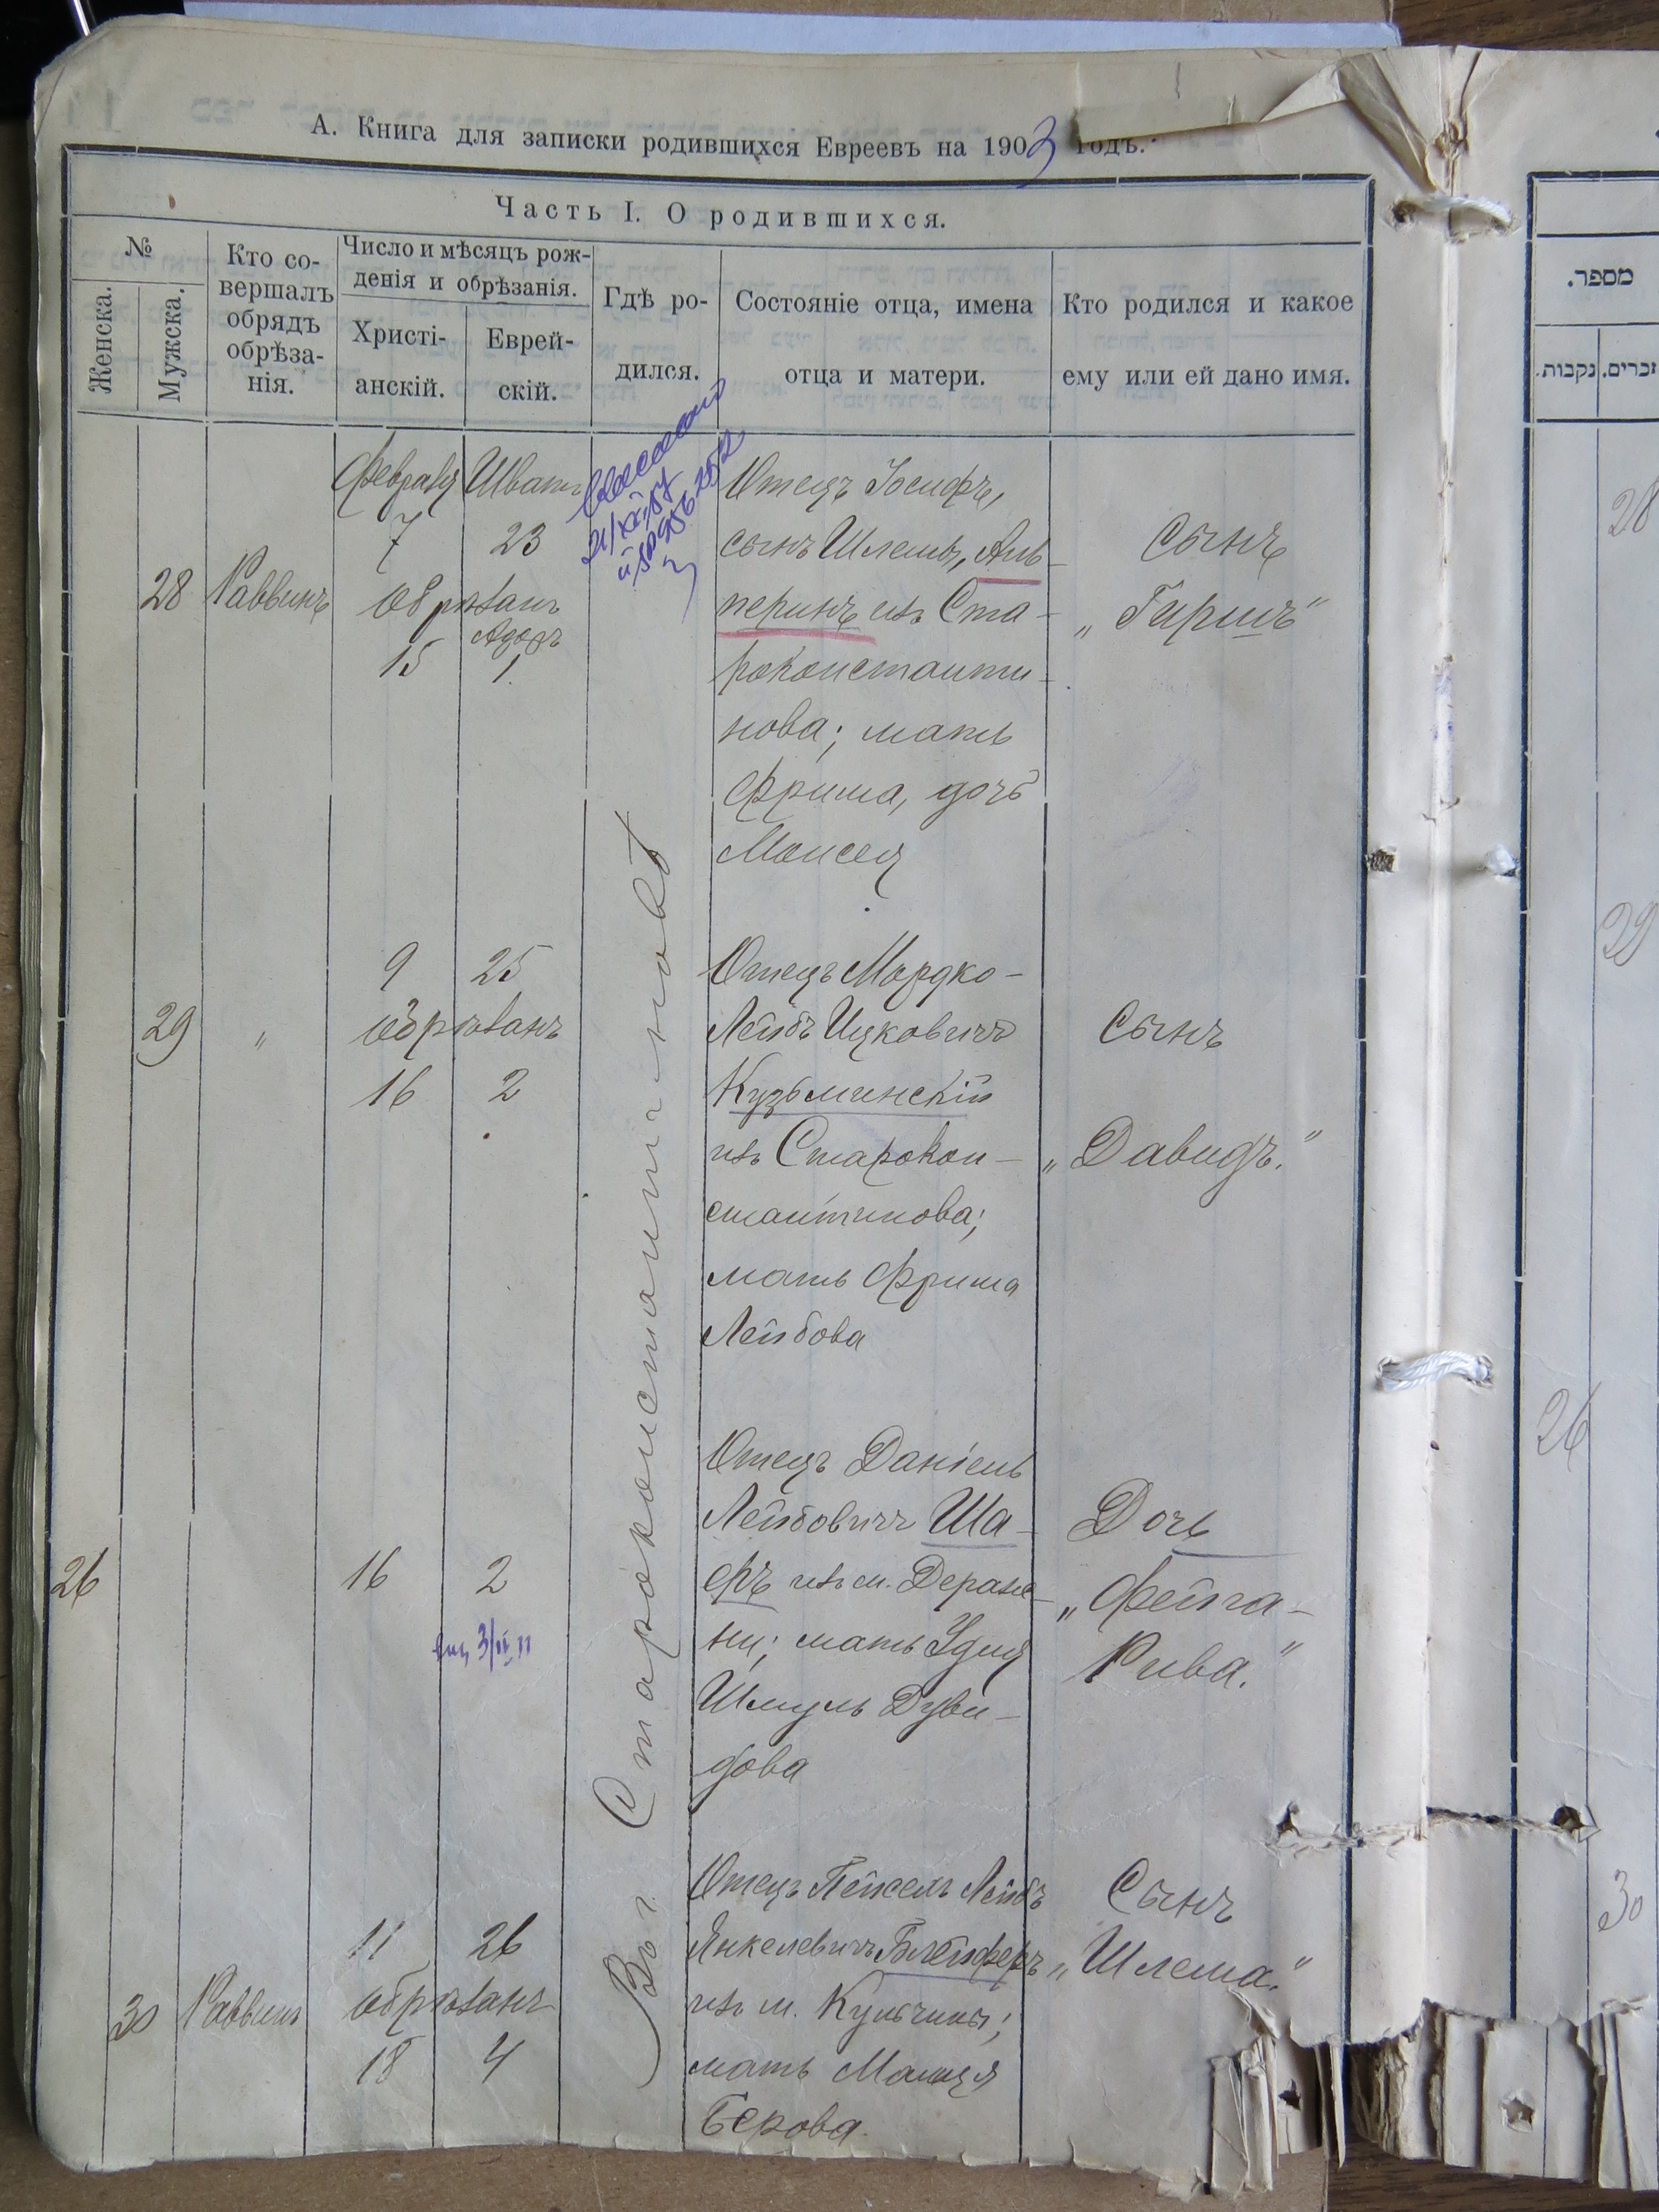 А. Книга для записки родившихся Евреевъ на 1903 годъ.
Часть I. О родившихся.
№
Женска.
Мужска.
Кто со-
вершалъ
обрядъ
обрѣза-
нія.
Число и мѣсяцъ рож-
денія и обрѣзанія.
Христі-
анскій.
Еврей-
скій.
Гдѣ ро-
дился.
Состояніе отца, имена
отца и матери.
Кто родился и какое
ему или ей дано имя.
Въ г. Староконстантиновѣ
Февраля Шватъ
7 23
28 Раввинъ обрѣзанъ
Адаръ
15 1.
Отецъ Іосифъ,
сынъ Шлемы, Аль-
перинъ изъ Ста-
роконстанти-
нова; мать
Фрима, дочь
Моисея
Сынъ
„Гиршъ“
9 25
29 „ обрѣзанъ
16 2
Отецъ Мордко-
Лейбъ Ицковичъ
Кузьминскій
изъ Старокон-
стантинова;
мать Фрима
Лейбова
Сынъ
„Давидъ.“
26 16 2
3/II 11
Отецъ Даніель
Лейбовичъ Ша-
фъ изъ м. Деражни;
мать Удия
Шмуль Дуви-
дова
Дочь
„Фейга-
Рива.“
11 26
30 Раввинъ обрѣзанъ
18 4
Отецъ Пейсехъ Лейбъ
Янкелевичъ Блейферъ
изъ м. Кульчины;
мать Маиця
Берова.
Сынъ
„Шлема.“
מספר.
זכרים.
נקבות.
28
29
26
30